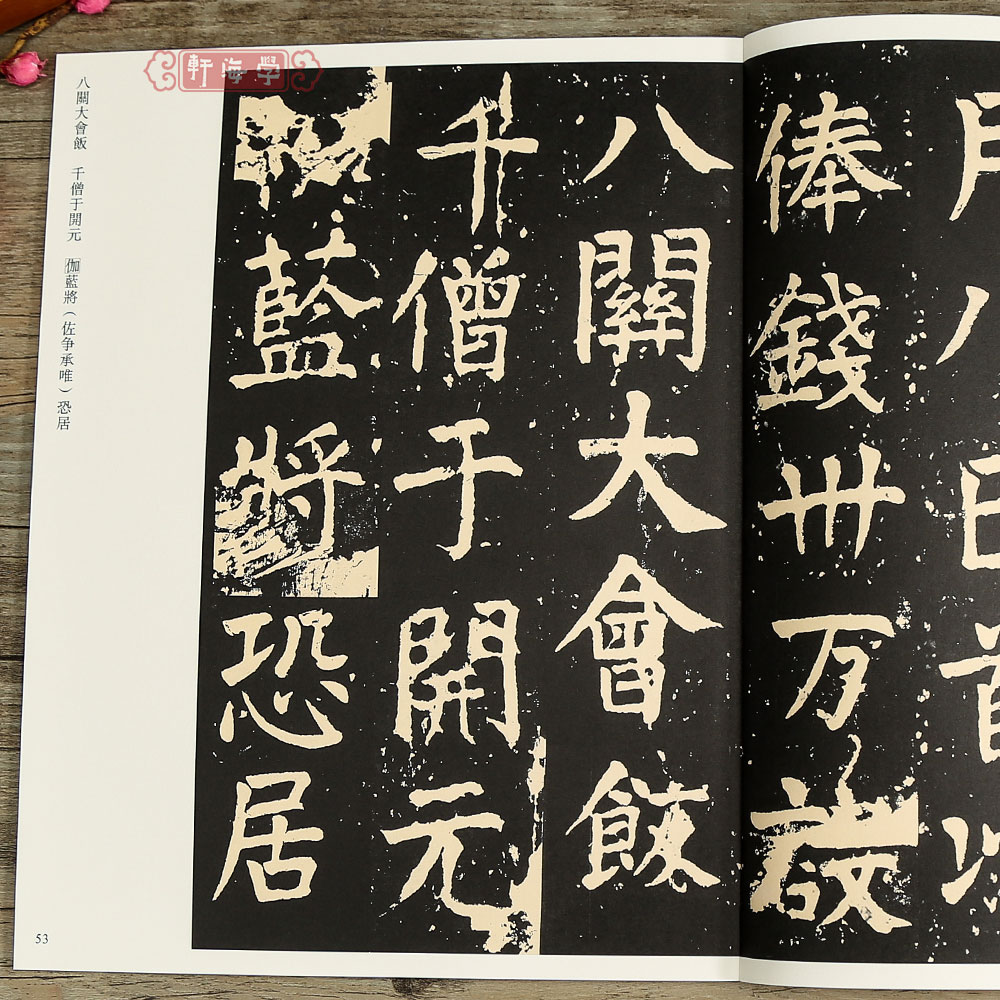 學海軒
俸錢卅万設
八關大會飯
千僧于開元
藍將恐居
八關大會飯　千僧于開元　伽藍將（佐争承唯）恐居
53